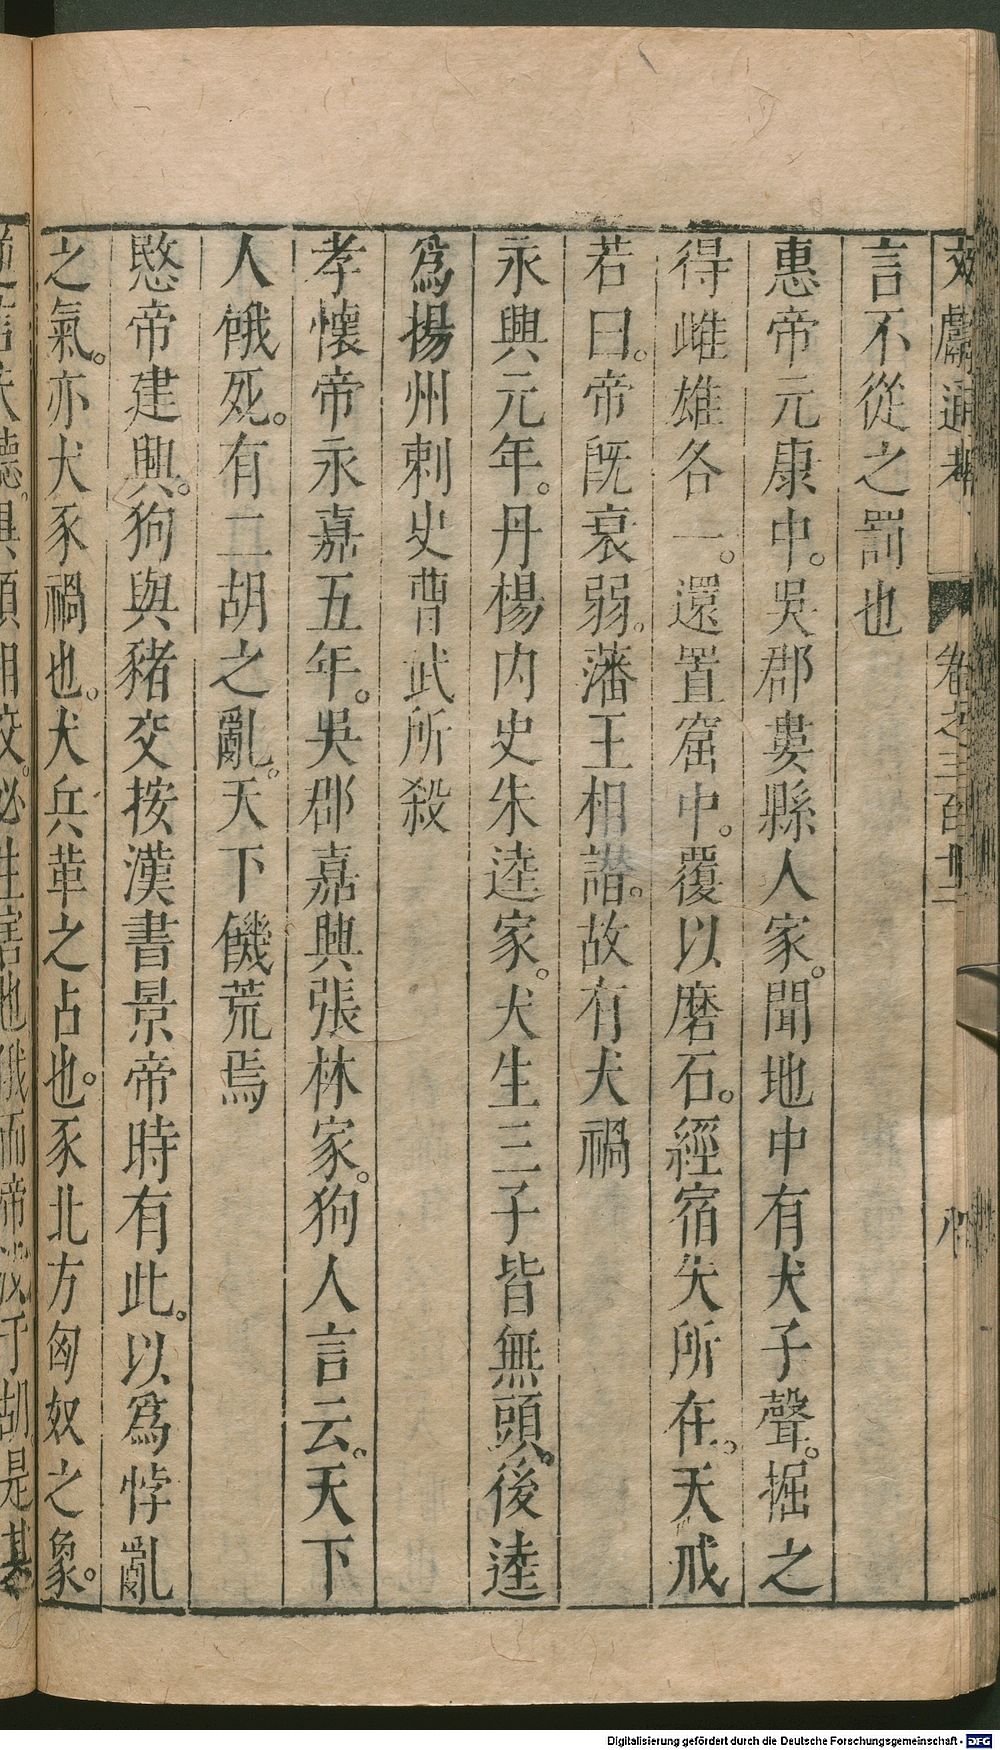 文獻通考 卷之三百十二 八
言不從之罰也
惠帝元康中。吳郡婁縣人家。聞地中有犬子聲。掘之
得雌雄各一。還置窟中。覆以磨石。經宿失所在。天戒
若曰。帝旣衰弱。藩王相譖。故有犬禍
永興元年。丹楊內史朱逵家。犬生三子皆無頭。後逵
爲揚州刺史曹武所殺
孝懷帝永嘉五年。吳郡嘉興張林家。狗人言云。天下
人餓死。有二胡之亂。天下饑荒焉
愍帝建興。狗與豬交按漢書景帝時有此。以爲悖亂
之氣。亦犬豕禍也。犬兵革之占也。豕北方匈奴之象。
逆言失聽。異類相交。必生害也俄而帝没于胡是其
Digitalisierung gefördert durch die Deutsche Forschungsgemeinschaft - DFG